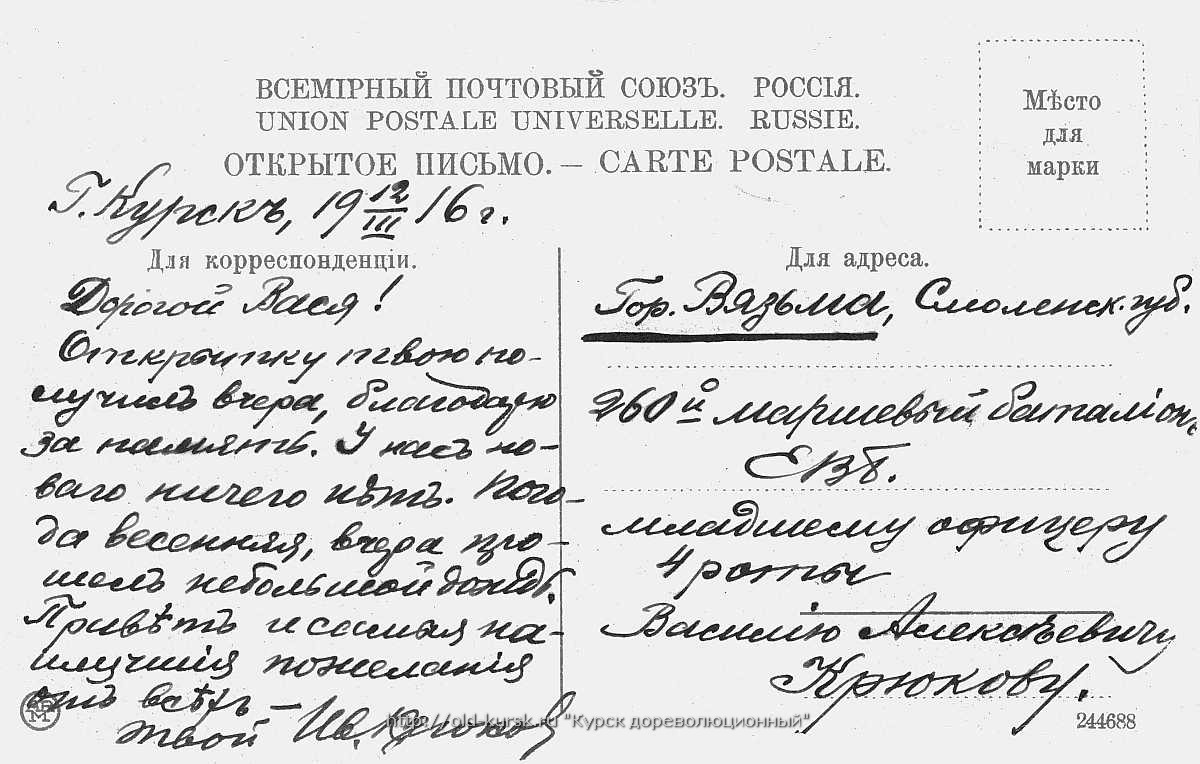 ВСЕМІРНЫЙ ПОЧТОВЫЙ СОЮЗЪ. РОССІЯ.
UNION POSTALE UNIVERSELLE. RUSSIE.
ОТКРЫТОЕ ПИСЬМО. — CARTE POSTALE.
Мѣсто
для
марки
Г. Курскъ, 19 12/III 16 г.
Для корреспонденціи.
Дорогой Вася!
Открытку твою по-
лучилъ вчера, благодарю
за память. У насъ но-
ваго ничего нѣтъ. Пого-
да весенняя, вчера про-
шелъ небольшой дождь.
Привѣтъ и самыя на-
илучшія пожеланія
отъ всѣхъ —
твой Ив. Крюковъ
Для адреса.
Гор. Вязьма, Смоленск. губ.
260й маршевый баталіонъ
ЕВБ.
младшему офицеру
4 роты
Василію Алексѣевичу
Крюкову.
244688
http://old-kursk.ru "Курск дореволюционный"